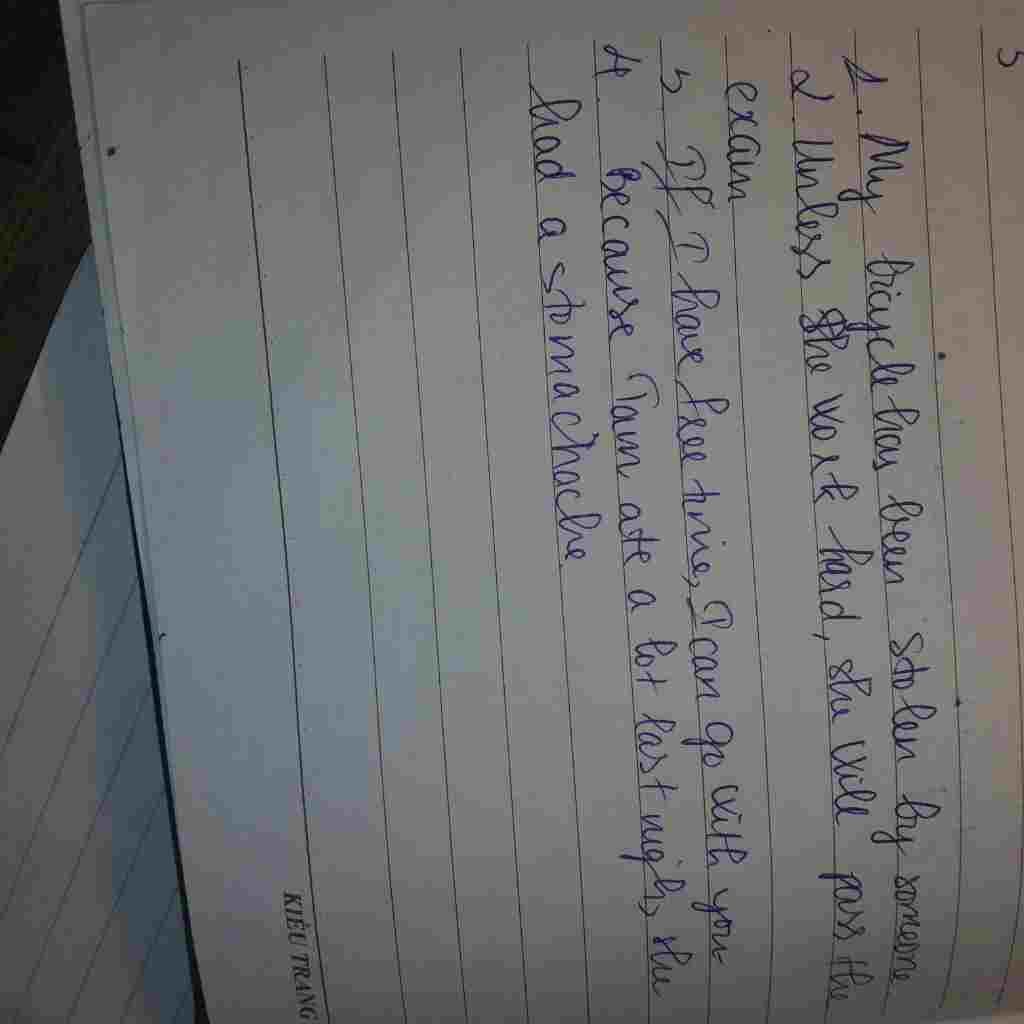 5
1. My bicycle has been stolen by someone
2. Unless she work hard, she will pass the
exam
3 If I have free time, I can go with you
4. Because Tam ate a lot last nigh, she
had a stomachache
KIỀU TRANG